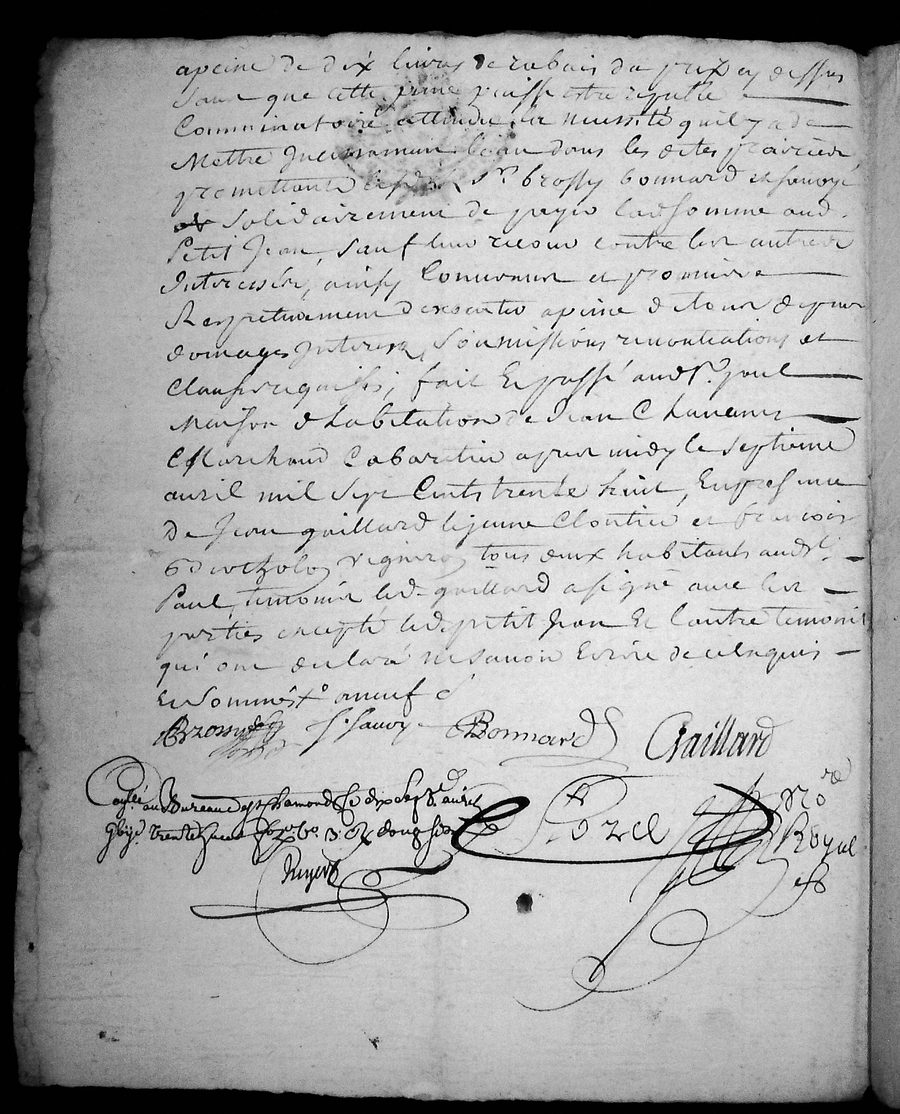 apeine de dix livres de rabais du prix cy dessus
sans que cette peine puisse estre reputée
Comminatoire attendu la necessité quil y a de
Mettre Incessamment leau dans les dites prairies,
promettants lesd. Srs brossy bonnard et sauvoy
solidairement de payer lad. somme aud.
Petit Jean, sauf leur recour contre les autres
Interessés, ainsy Convenu et promis
Respectivement dexecuter apeine de tous depens
domages Interest, soumissions renontiations et
Clauses requises; fait Et passé aud. St. paul
Maison d habitation de Jean Chavanes
Marchand Cabaretier apres midy le septieme
avril mil sept Cents trente huit, En presence
De Jean gaillard lejeune Cloutier et francois
tous deux habitants aud. St.
Paul, temoins led. gaillard a signé avec les
parties excepté led. petit Jean Et l'autre temoins
qui ont declaré ne savoir Ecrire de ce Enquis
Et Sommés
S. sauvoy Bonnard Gaillard
au Bureau de St. chamond le dix sept avril
trente huit
No.re
Royal